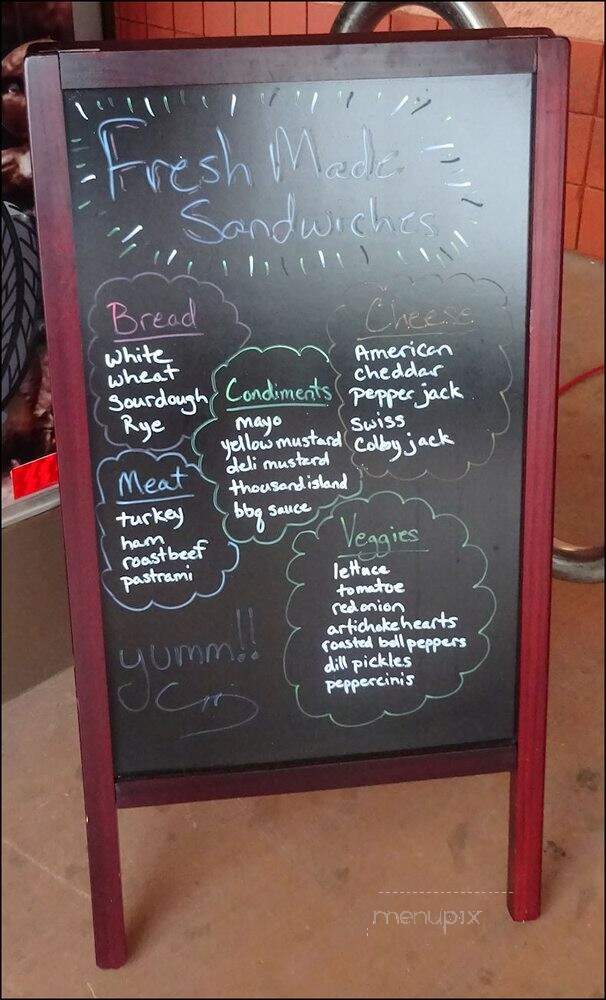 Fresh Made
Sandwiches
Bread
White
wheat
Sourdough
Rye
Cheese
American
cheddar
Pepper jack
Swiss
Colby jack
Condiments
mayo
yellow mustard
deli mustard
thousand island
bbq sauce
Meat
turkey
ham
roast beef
pastrami
Veggies
lettuce
tomatoe
red onion
artichoke hearts
roasted bell peppers
dill pickles
peppercinis
yumm!!
menupix